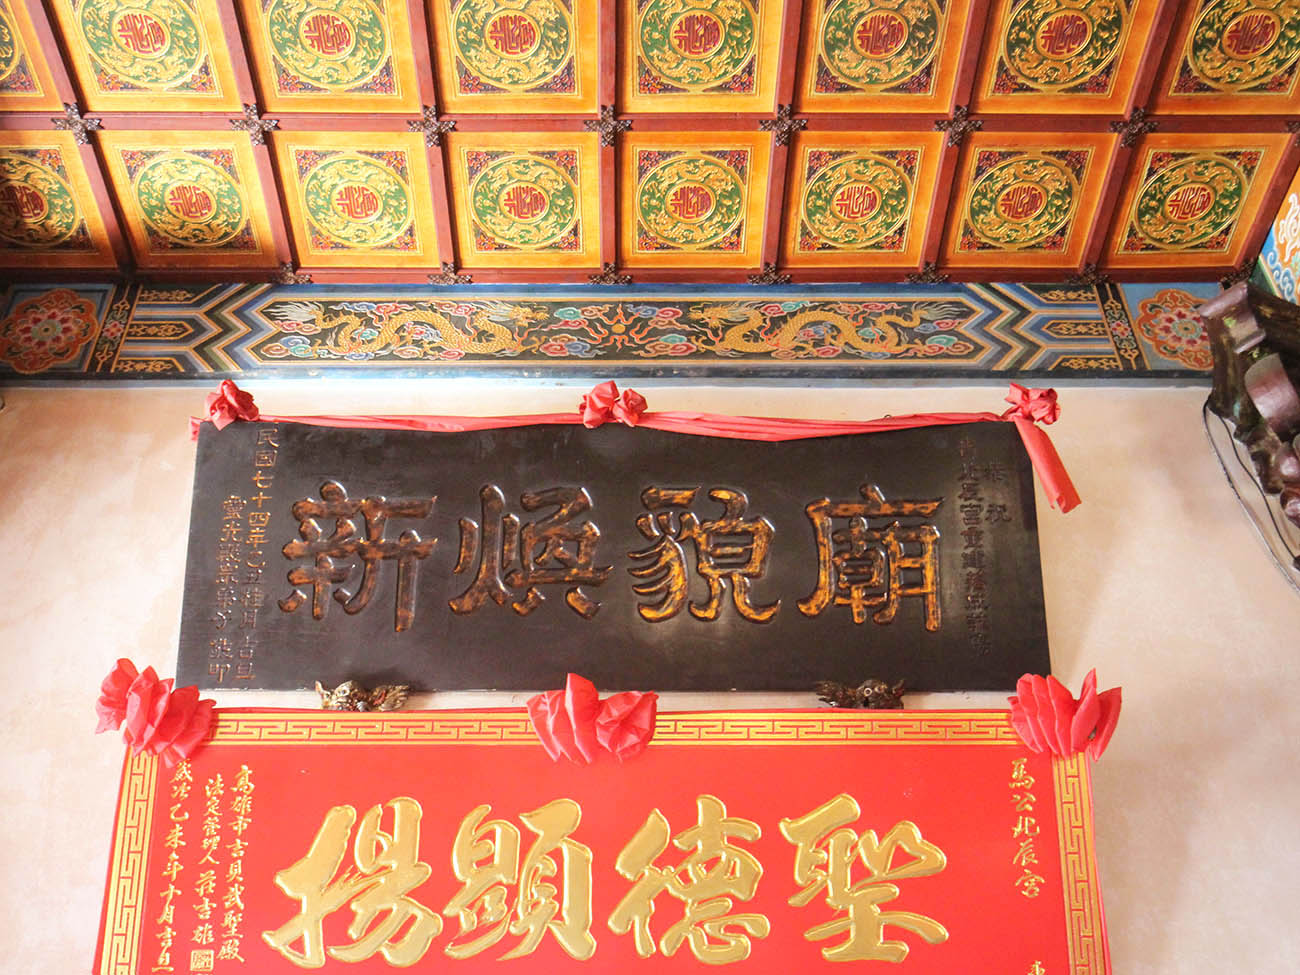 恭祝
北辰宮重建落成誌慶
廟貌煥新
民國七十四年乙丑桂月吉旦
馬公北辰宮
聖德顯揚
高雄市吉貝武聖殿
法定管理人莊吉雄
歲次乙未年十月吉旦